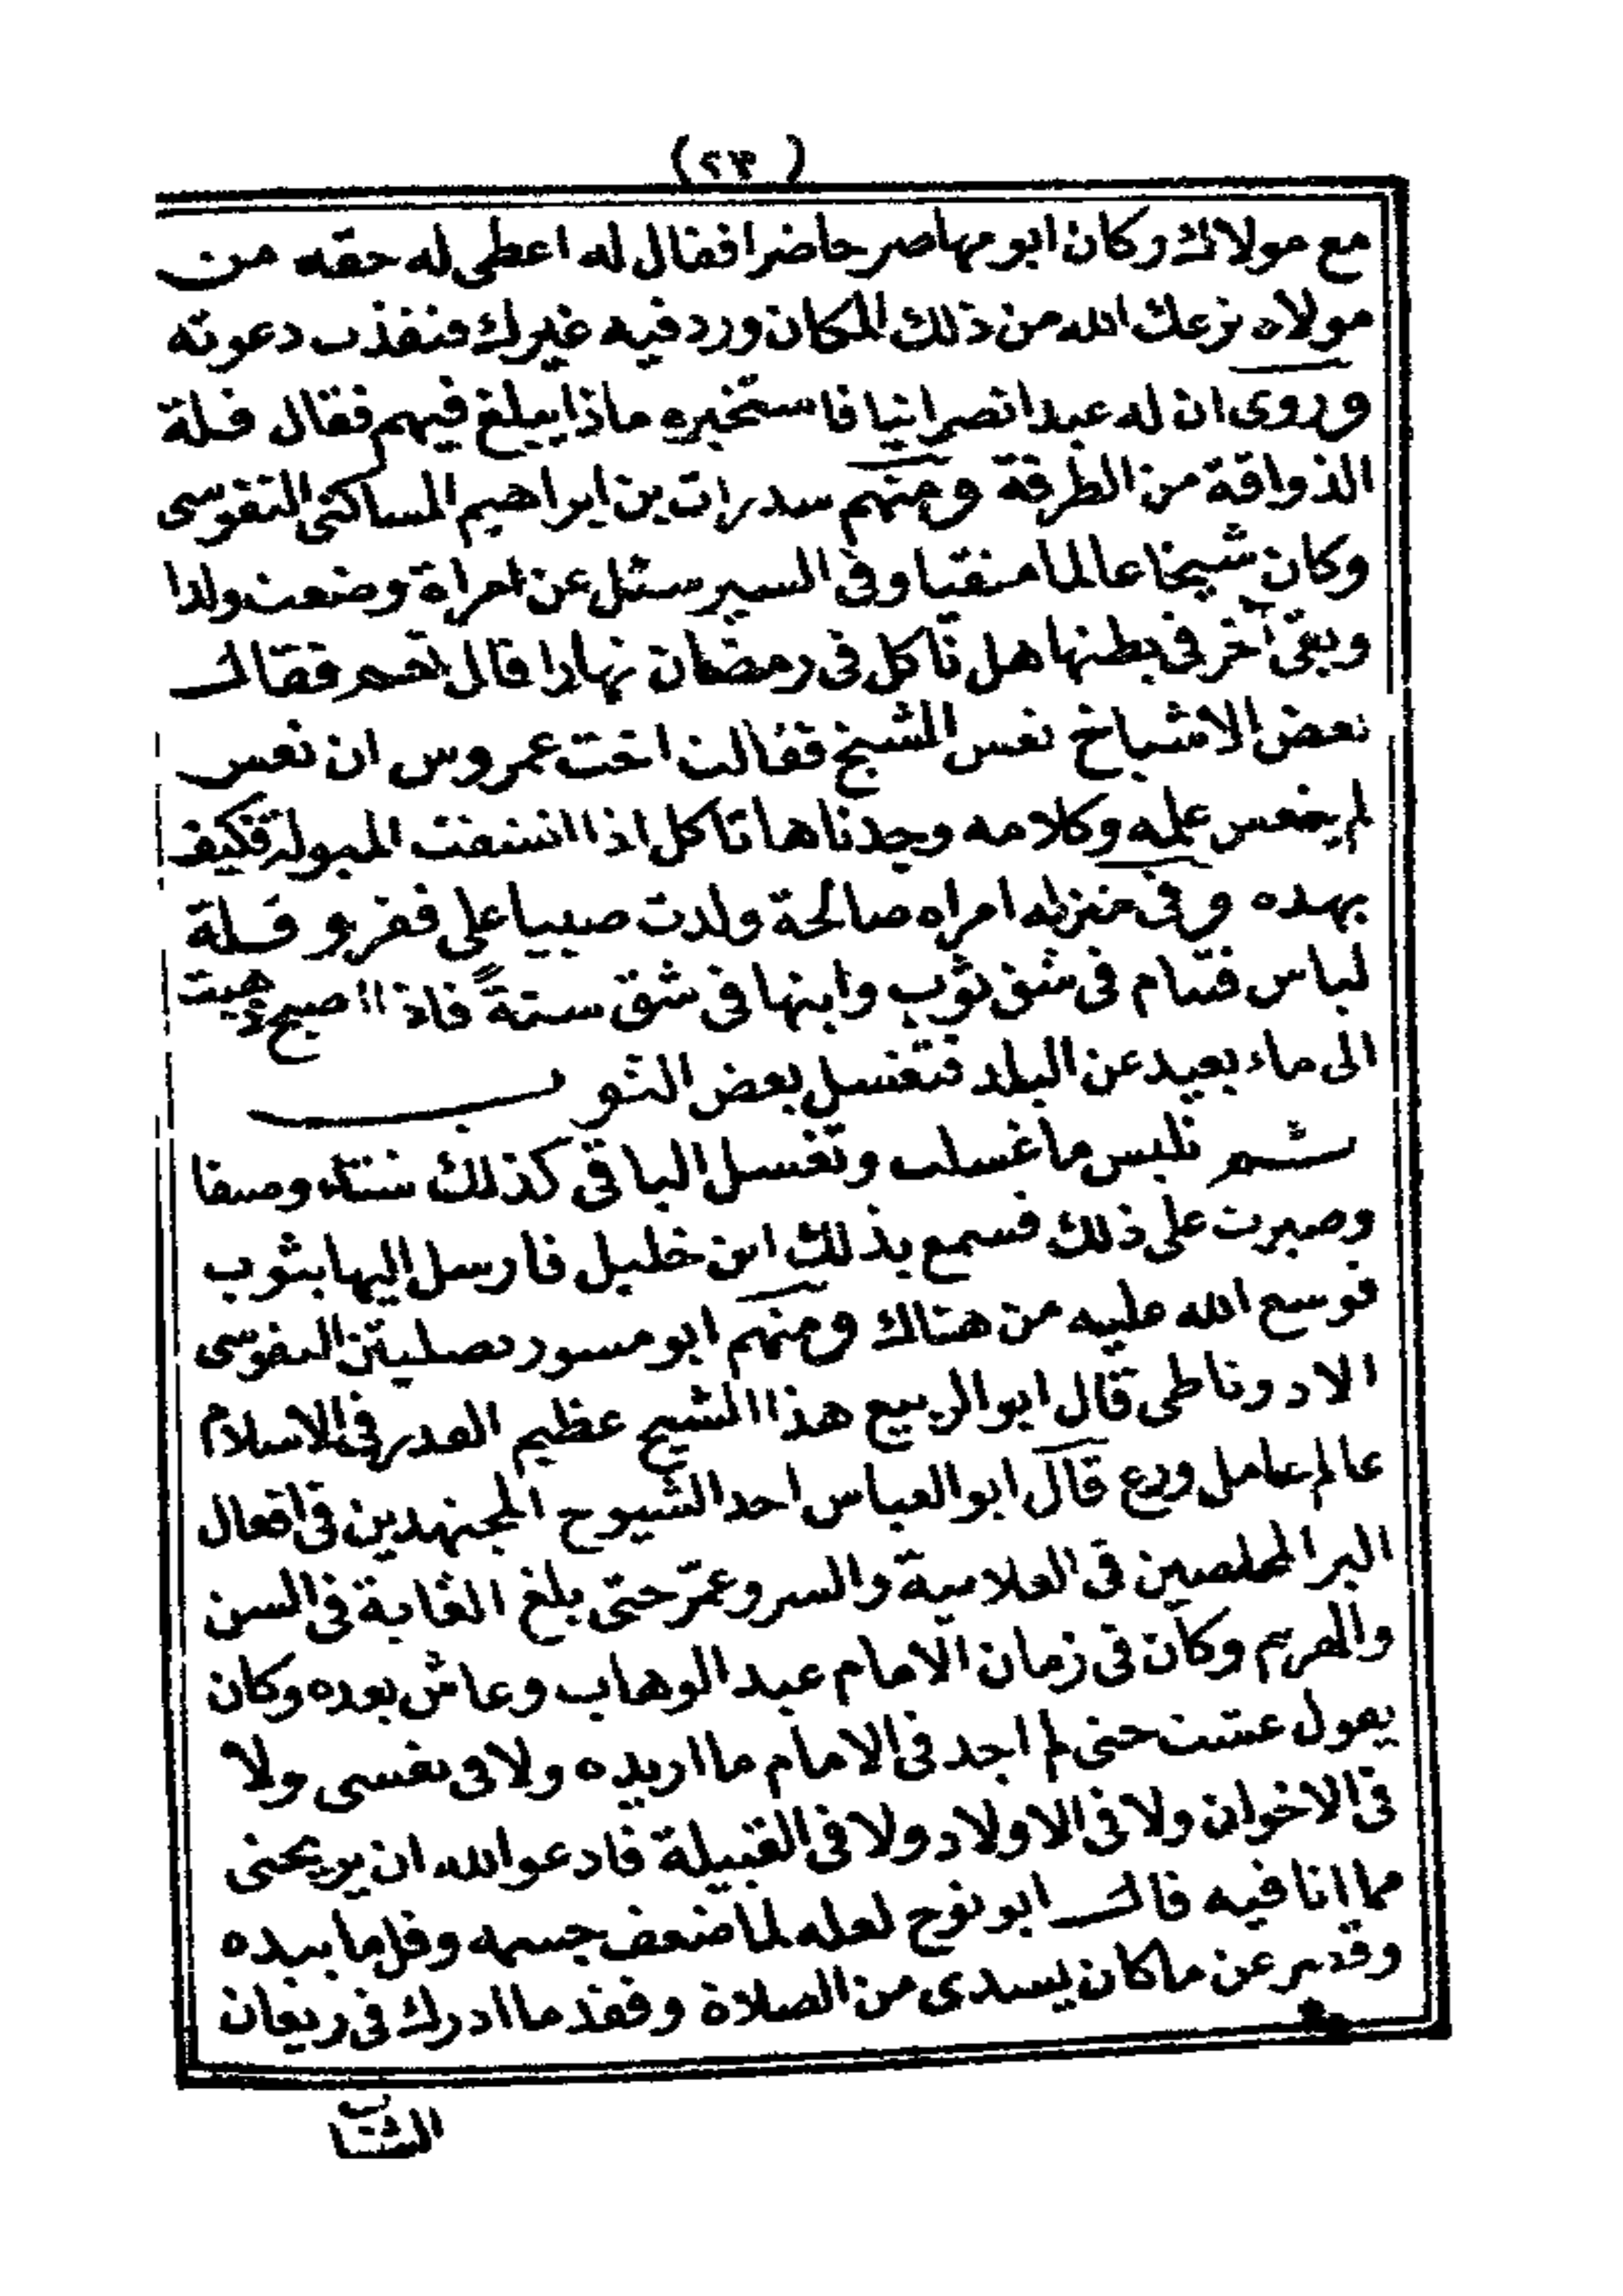 (٢٣)
مع مولاك وكان ابو مهاصر حاضرا فقال له اعطى له حقه من
مولاه نزعك الله من ذلك المكان ورد فيه غيرك فنفذت دعوته
وروى ان له عبدا نصرانيا فاستخبره ماذا يبلغ فيهم فقال قلة
الذواقة من الطرقة ومنهم سدرات بن ابراهيم المساكنى النفوسى
وكان شيخا عالما متقيا وفى السير سئل عن امراة وضعت ولدا
وبقى آخر فى بطنها هل تاكل فى رمضان نهارا قال نعم فقال
بعض الاشياخ نعس الشيخ فقالت اخت عمروس ان نعس
لم ينعس علمه وكلامه وجدناها تاكل اذا انشقت المبولة فكيف
بهده وفى منزله امراه صالحة ولدت صبيا على فقر و قلة
لباس فتنام فى شق ثوب وابنها فى شق سترةً فاذا اصبح ذهبت
الى ماء بعيد عن البلد فتغسل بعض الثوب
ثم تلبس ما غسلت وتغسل الباقى كذلك شتاء وصفا
وصبرت على ذلك فسمع بذلك ابن خليل فارسل اليها بثوب
فوسع الله عليه من هناك ومنهم ابو مسور يصليتن النفوسى
الادوناطى قال ابو الربيع هذا الشيح عظيم القدر فى الاسلام
عالم عامل ورع قال ابو العباس احد الشيوح المجتهدين فى افعال
البر المخلصين فى العلانية والسر وعمّر حتى بلغ الغاية فى السن
والهرم وكان فى زمان الامام عبد الوهاب وعاش بعده وكان
يقول عشت حتى لم اجد فى الامام ما اريده ولا فى نفسى ولا
فى الاخوان ولا فى الاولاد ولا فى القبيلة فادعو الله ان يريحنى
مما انا فيه قال ابو نوح لعله لما ضعف جسمه وقل ما بيده
وقصر عن ما كان يسدى من الصلاة وفقد ما ادرك فى ريعان
الشباب